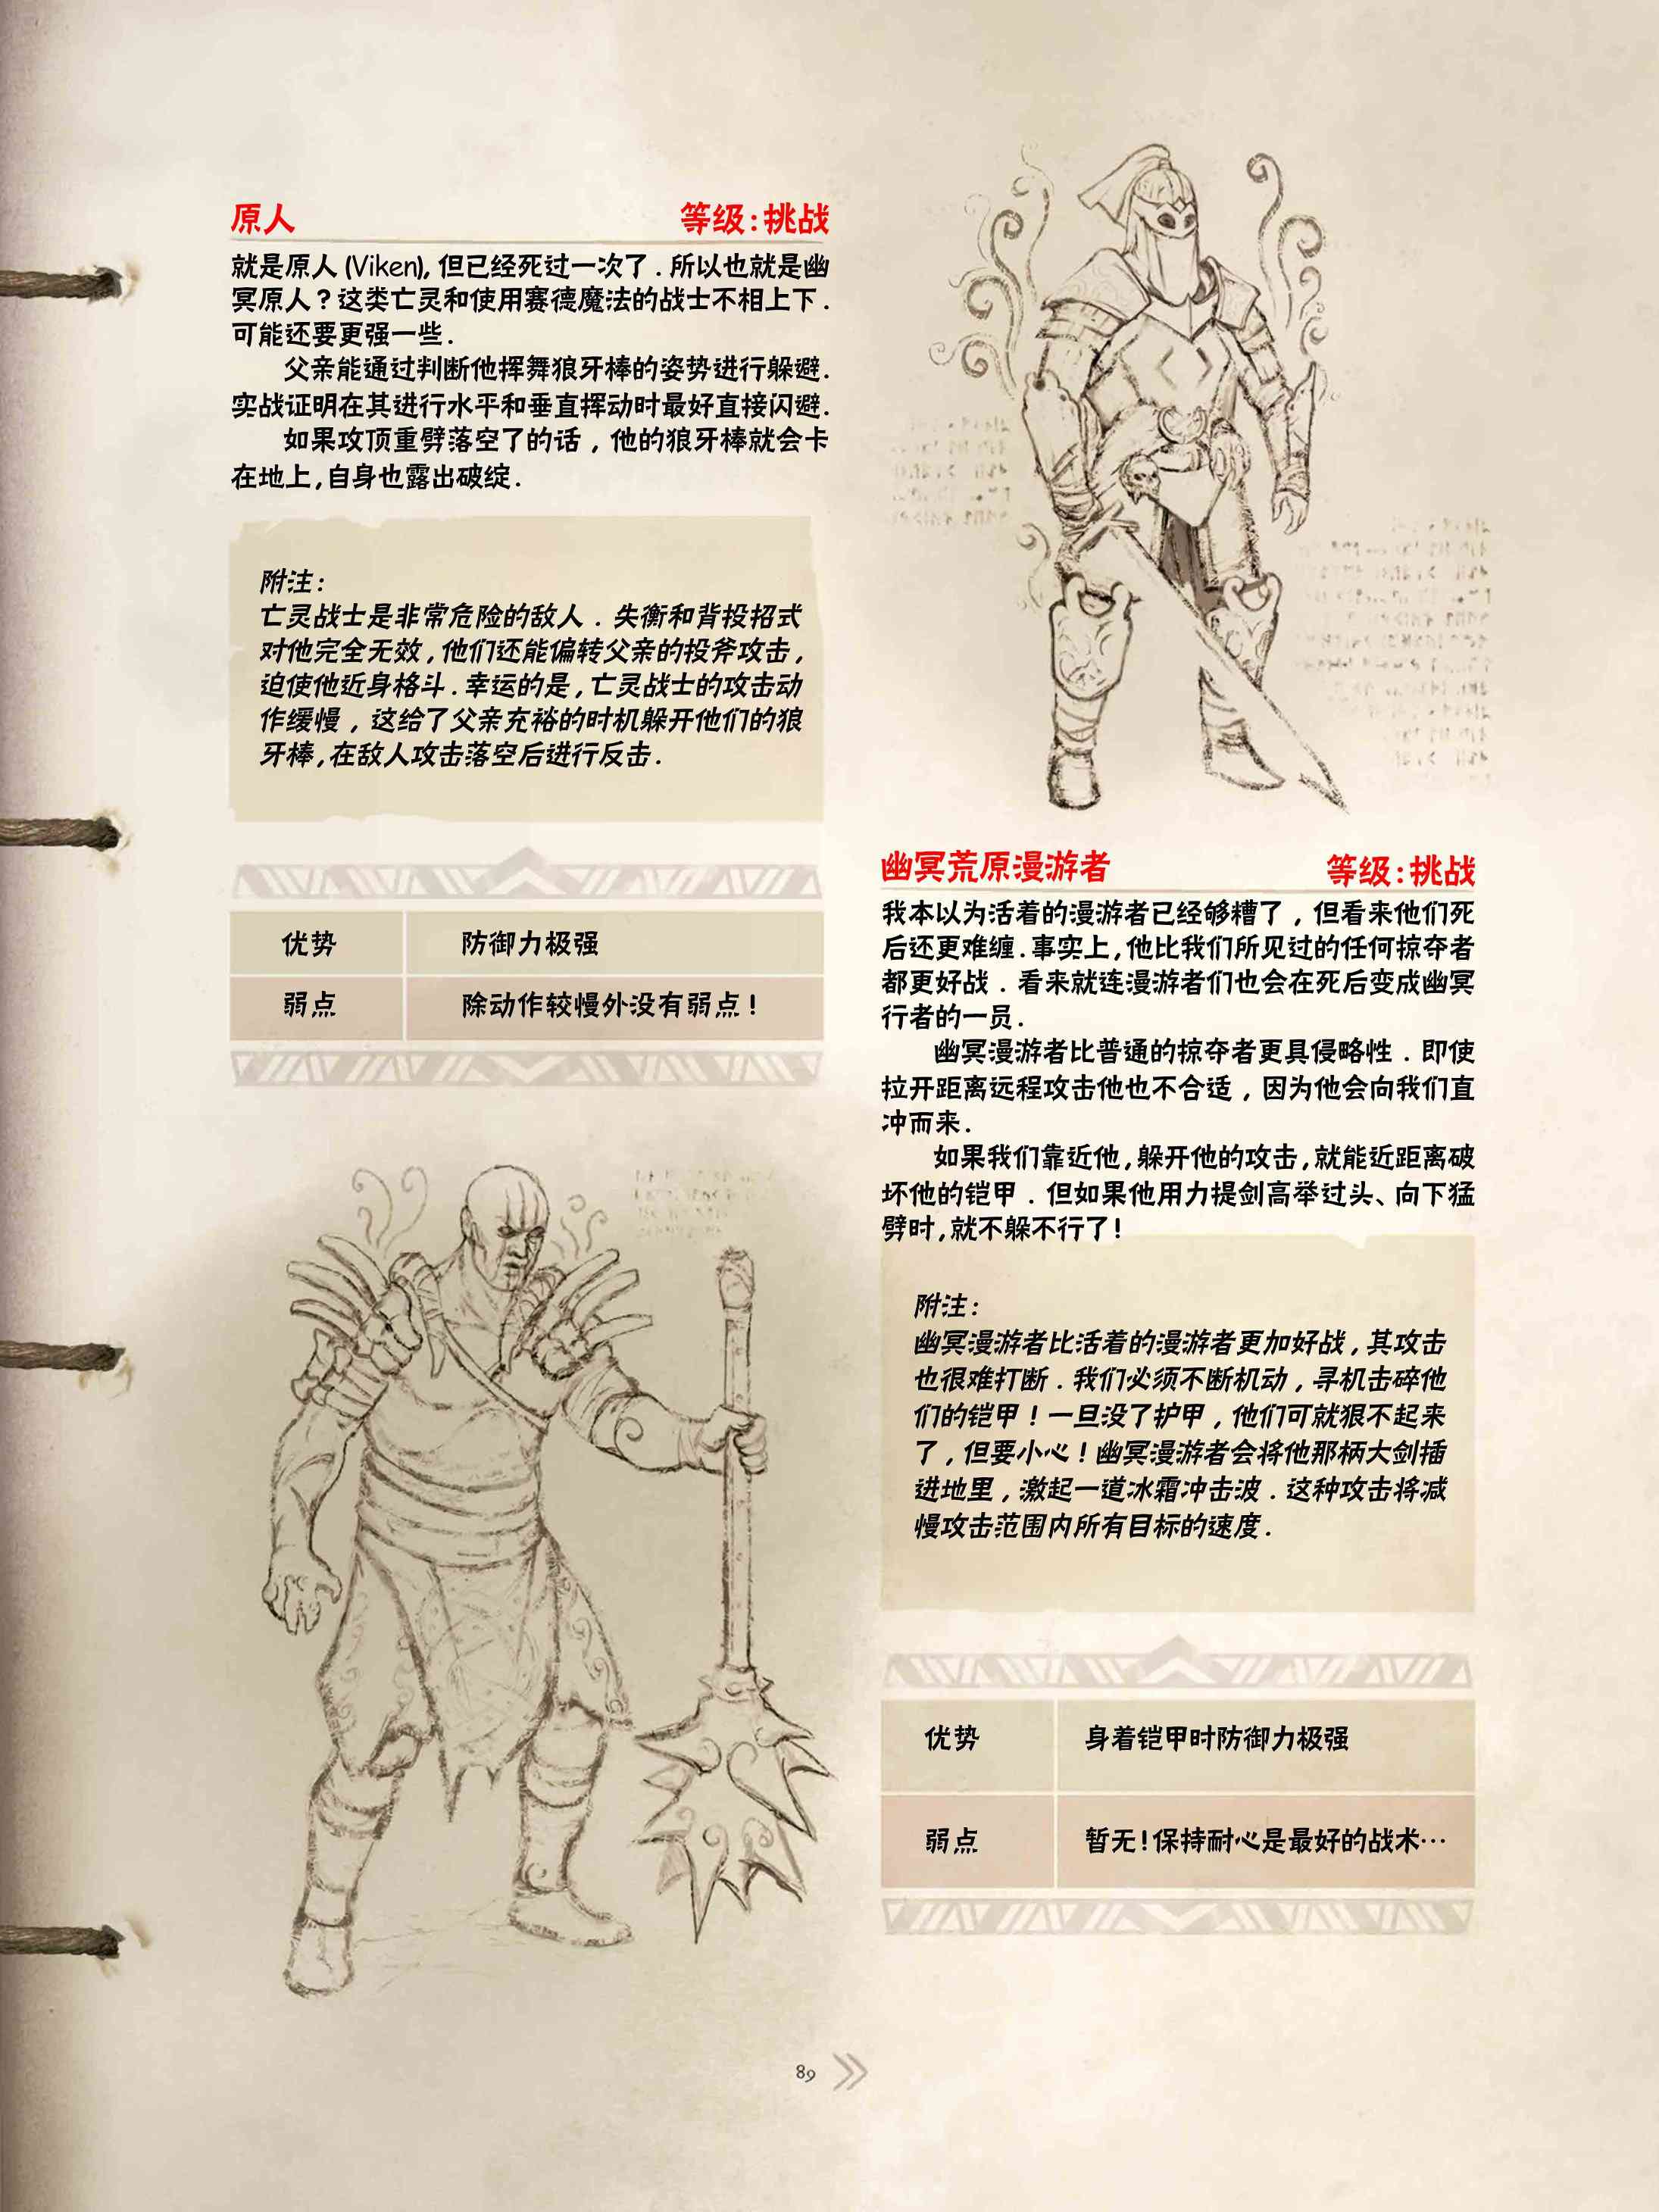 原人 等级:挑战
就是原人(Viken),但已经死过一次了.所以也就是幽
冥原人?这类亡灵和使用赛德魔法的战士不相上下.
可能还要更强一些.
父亲能通过判断他挥舞狼牙棒的姿势进行躲避.
实战证明在其进行水平和垂直挥动时最好直接闪避.
如果攻顶重劈落空了的话,他的狼牙棒就会卡
在地上,自身也露出破绽.
附注:
亡灵战士是非常危险的敌人.失衡和背投招式
对他完全无效,他们还能偏转父亲的投斧攻击,
迫使他近身格斗.幸运的是,亡灵战士的攻击动
作缓慢,这给了父亲充裕的时机躲开他们的狼
牙棒,在敌人攻击落空后进行反击.
优势 防御力极强
弱点 除动作较慢外没有弱点!
幽冥荒原漫游者 等级:挑战
我本以为活着的漫游者已经够糟了,但看来他们死
后还更难缠.事实上,他比我们所见过的任何掠夺者
都更好战.看来就连漫游者们也会在死后变成幽冥
行者的一员.
幽冥漫游者比普通的掠夺者更具侵略性.即使
拉开距离远程攻击他也不合适,因为他会向我们直
冲而来.
如果我们靠近他,躲开他的攻击,就能近距离破
坏他的铠甲.但如果他用力提剑高举过头、向下猛
劈时,就不躲不行了!
附注:
幽冥漫游者比活着的漫游者更加好战,其攻击
也很难打断.我们必须不断机动,寻机击碎他
们的铠甲!一旦没了护甲,他们可就狠不起来
了,但要小心!幽冥漫游者会将他那柄大剑插
进地里,激起一道冰霜冲击波.这种攻击将减
慢攻击范围内所有目标的速度.
优势 身着铠甲时防御力极强
弱点 暂无!保持耐心是最好的战术…
89